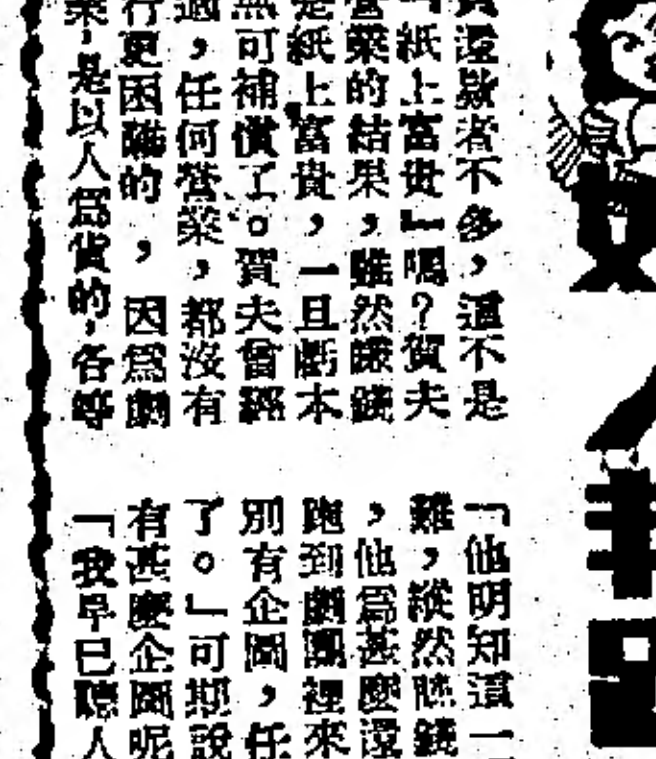 還款者不多，這不是
「紙上富貴」嗎？賀夫
營業的結果，雖然賺錢
是紙上富貴，一旦虧本
無可補償了。賀夫曾經
過，任何營業，都沒有
行更困難的，因爲劇
業，是以人爲貨的，各等
「他明知這一
難，縱然賺錢
，他爲甚麼還
跑到劇團裡來
別有企圖，任
了。」可期說
有甚麼企圖呢
「我早已聽人